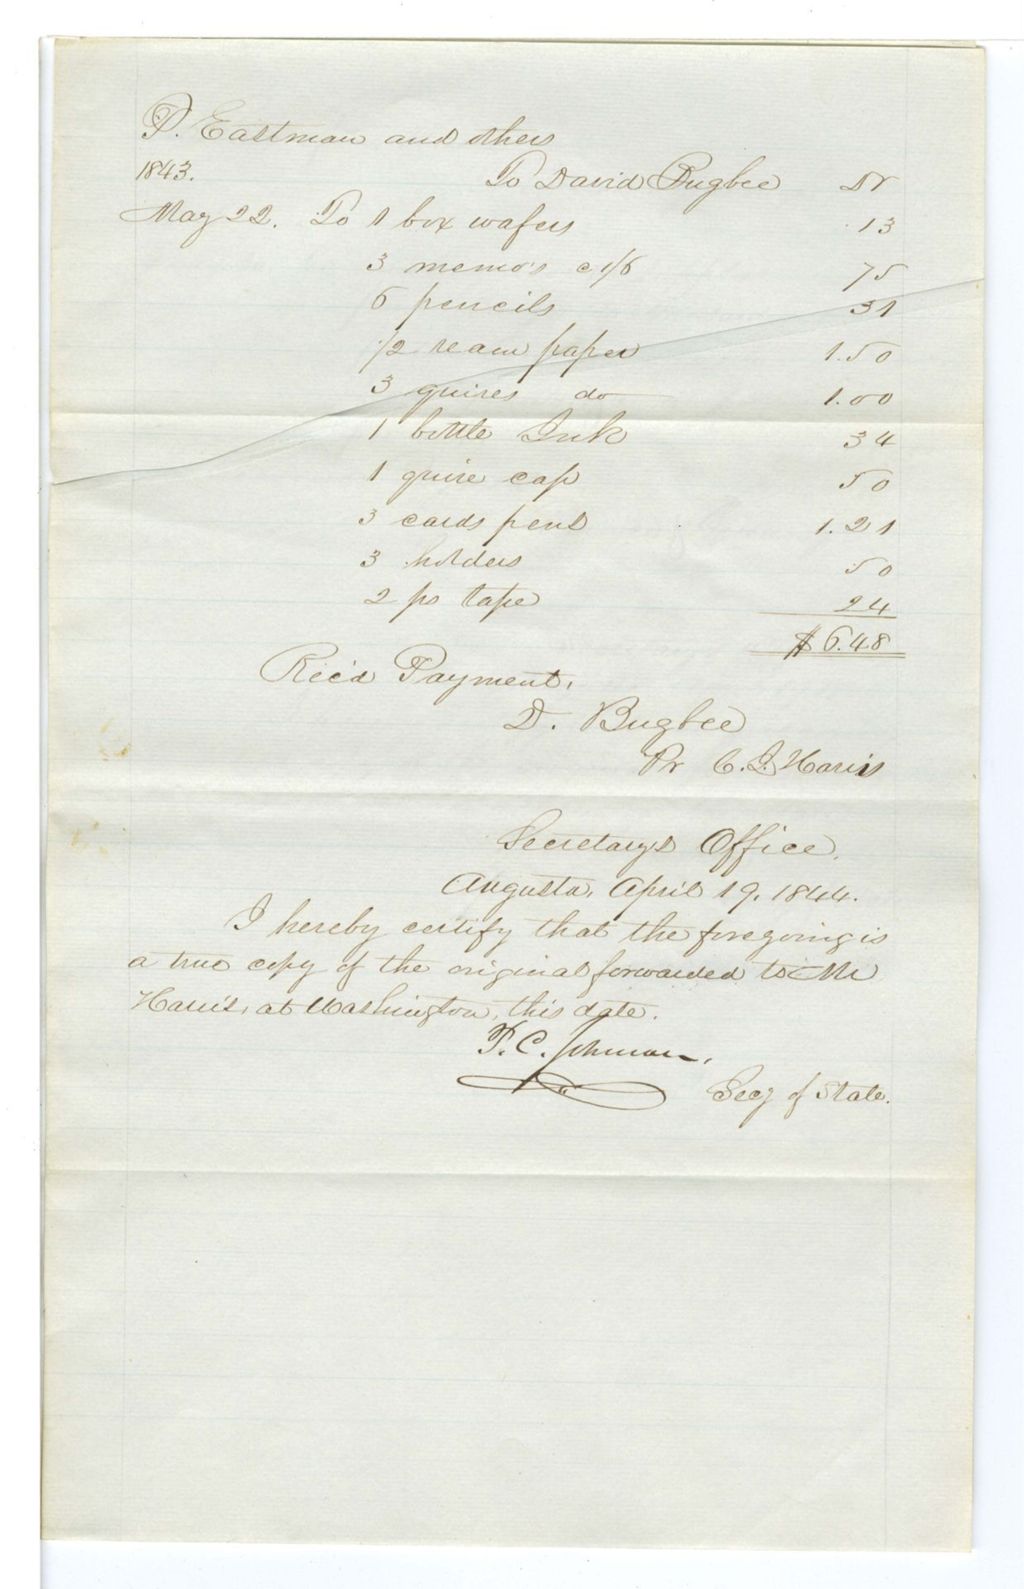 P. Eastman and others
1843. To David Bugbee Dr
May 22. To 1 box wafers 13
3 memo's c 1/6 75
6 pencils 31
1/2 ream paper 1.50
3 quires do 1.00
1 bottle Ink 34
1 quire cap 50
3 cards pens 1.21
3 holders 50
2 ps tape 24
$6.48
Rec'd Payment,
D. Bugbee
Pr C. J. Harris
Secretary's Office,
Augusta, April 19, 1844.
I hereby certify that the foregoing is
a true copy of the original forwarded to Mr
Harris, at Washington, this date.
P. C. Johnson,
Secy of State.